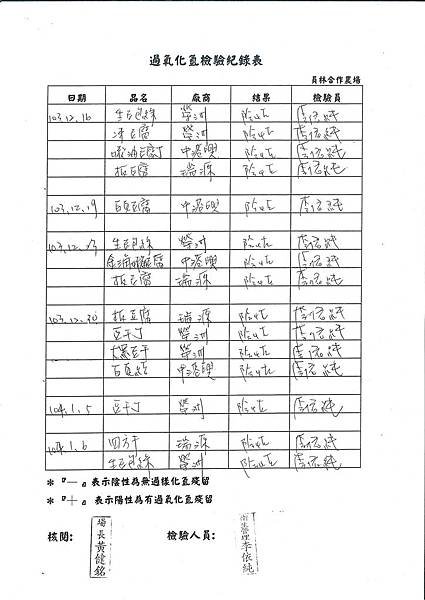 過氧化氫檢驗紀錄表
員林合作農場
日期 品名 廠商 結果 檢驗員
103.12.16 生豆包絲 榮洲 陰性 李依純
凍豆腐 榮洲 陰性 李依純
豆腐丁 中港興 陰性 李依純
板豆腐 瑞源 陰性 李依純
103.12.19 百頁豆腐 中港興 陰性 李依純
103.12.23 生豆包絲 榮洲 陰性 李依純
豆腐 中港興 陰性 李依純
板豆腐 瑞源 陰性 李依純
103.12.30 板豆腐 瑞源 陰性 李依純
豆干丁 榮洲 陰性 李依純
大黑豆干 榮洲 陰性 李依純
百頁結 中港興 陰性 李依純
104.1.5 豆干丁 榮洲 陰性 李依純
104.1.6 四方干 瑞源 陰性 李依純
生豆包絲 榮洲 陰性 李依純
*『一』表示陰性為無過樣化氫殘留
*『十』表示陽性為有過氧化氫殘留
核閱: 場長黃健銘 檢驗人員: 衛生管理李依純